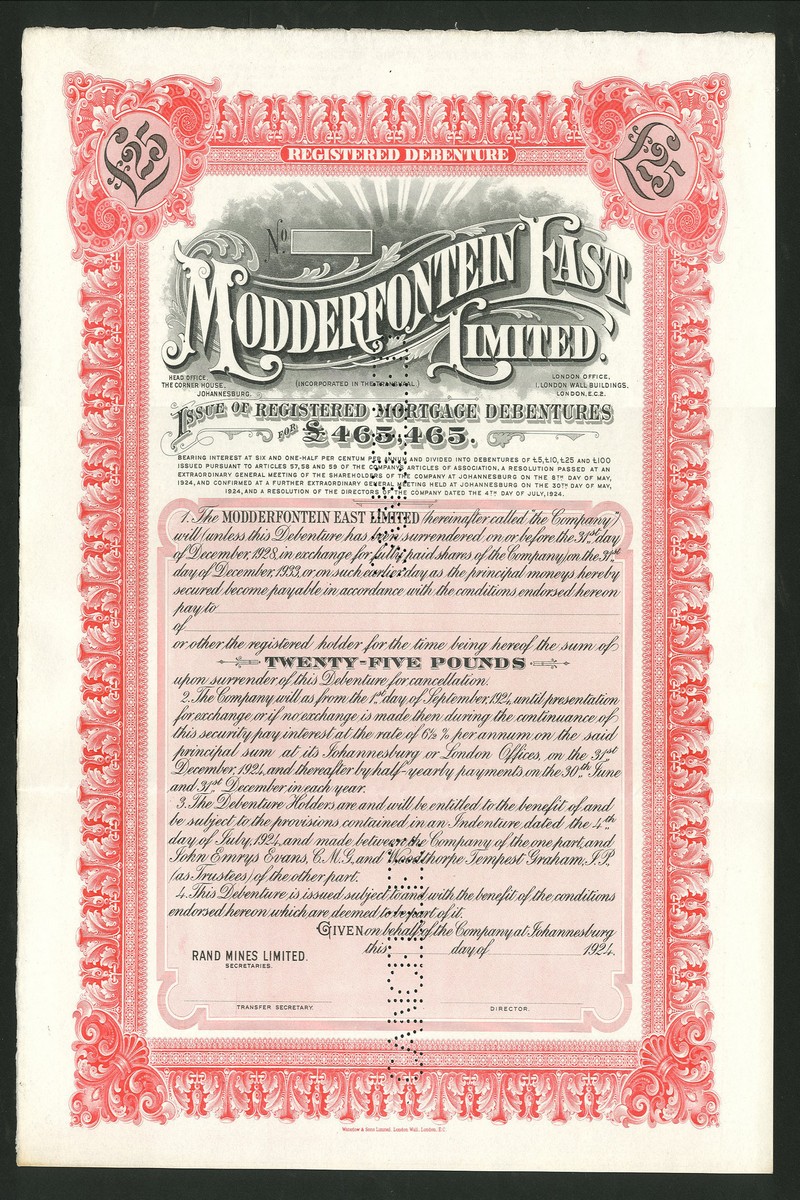 £25
REGISTERED DEBENTURE
£25
No.
MODDERFONTEIN EAST
LIMITED.
HEAD OFFICE,
THE CORNER HOUSE,
JOHANNESBURG.
(INCORPORATED IN THE TRANSVAAL.)
LONDON OFFICE,
1, LONDON WALL BUILDINGS,
LONDON, E.C.2.
ISSUE OF REGISTERED MORTGAGE DEBENTURES
FOR £465,465.
BEARING INTEREST AT SIX AND ONE-HALF PER CENTUM PER ANNUM AND DIVIDED INTO DEBENTURES OF £5, £10, £25 AND £100
ISSUED PURSUANT TO ARTICLES 57, 58 AND 59 OF THE COMPANY'S ARTICLES OF ASSOCIATION, A RESOLUTION PASSED AT AN
EXTRAORDINARY GENERAL MEETING OF THE SHAREHOLDERS OF THE COMPANY AT JOHANNESBURG ON THE 8TH DAY OF MAY,
1924, AND CONFIRMED AT A FURTHER EXTRAORDINARY GENERAL MEETING HELD AT JOHANNESBURG ON THE 30TH DAY OF MAY,
1924, AND A RESOLUTION OF THE DIRECTORS OF THE COMPANY DATED THE 4TH DAY OF JULY, 1924.
1. The MODDERFONTEIN EAST LIMITED (hereinafter called "the Company")
will (unless this Debenture has been surrendered on or before the 31st day
of December, 1928, in exchange for fully paid shares of the Company) on the 31st
day of December, 1933, or on such earlier day as the principal moneys hereby
secured become payable in accordance with the conditions endorsed hereon
pay to
of
or other the registered holder for the time being hereof the sum of
TWENTY-FIVE POUNDS
upon surrender of this Debenture for cancellation.
2. The Company will as from the 1st day of September, 1924, until presentation
for exchange or if no exchange is made then during the continuance of
this security pay interest at the rate of 6½ % per annum on the said
principal sum at its Johannesburg or London Offices, on the 31st
December, 1924, and thereafter by half-yearly payments on the 30th June
and 31st December in each year.
3. The Debenture Holders are and will be entitled to the benefit of, and
be subject to the provisions contained in an Indenture, dated the 4th
day of July, 1924, and made between the Company of the one part, and
John Emrys Evans, C.M.G., and Woodthorpe Tempest Graham, J.P.
(as Trustees) of the other part.
4. This Debenture is issued subject to and with the benefit of the conditions
endorsed hereon which are deemed to be part of it.
GIVEN on behalf of the Company at Johannesburg
this day of 1924.
RAND MINES LIMITED.
SECRETARIES.
TRANSFER SECRETARY.
DIRECTOR.
CANCELLED
CANCELLED
Waterlow & Sons Limited, London Wall, London, E.C.